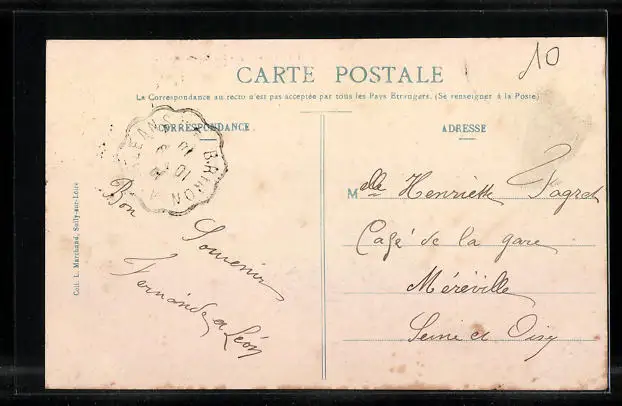 10
CARTE POSTALE
La Correspondance au recto n'est pas acceptée par tous les Pays Etrangers. (Se renseigner à la Poste)
CORRESPONDANCE
ADRESSE
Bon
Souvenir
Fernande et Léon
Melle Henriette
Café de la gare
Méréville
Seine et Oise
Coll. L. Marchand, Sully-sur-Loire